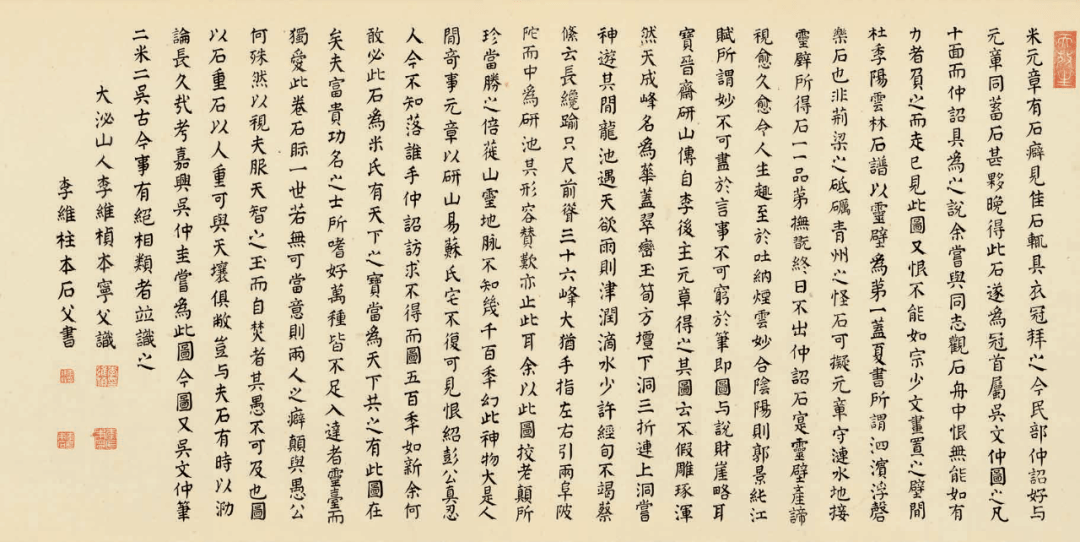 米元章有石癖見佳石輒具衣冠拜之今民部仲詔好与
元章同蓄石甚夥晚得此石遂為冠首屬吳文仲圖之凡
十面而仲詔具為之說余嘗與同志觀石舟中恨無能如有
力者負之而走已見此圖又恨不能如宗少文畫置之壁間
杜季陽雲林石譜以靈壁為第一蓋夏書所謂泗濱浮磬
樂石也非荊梁之砥礪青州之怪石可擬元章守漣水地接
靈壁所得石一一品第撫翫終日不出仲詔石寔靈壁產諦
視愈久愈令人生趣至於吐納煙雲妙合陰陽則郭景純江
賦所謂妙不可盡於言事不可窮於筆即圖与說財崖略耳
寶晉齋研山傳自李後主元章得之其圖云不假雕琢渾
然天成峰名為華蓋翠巒玉筍方壇下洞三折連上洞嘗
神遊其間龍池遇天欲雨則津潤滴水少許經旬不竭蔡
絛云長纔踰只尺前聳三十六峰大猶手指左右引兩阜陂
陀而中為研池其形容贊歎亦止此耳余以此圖挍老顛所
珍當勝之倍蓰山靈地脈不知幾千百秊幻此神物大是人
間奇事元章以研山易蘇氏宅不復可見恨紹彭公真忍
人今不知落誰手仲詔訪求不得而圖五百秊如新余何
敢必此石為米氏有天下之寶當為天下共之有此圖在
矣夫富貴功名之士所嗜好萬種皆不足入達者靈臺而
獨愛此卷石眎一世若無可當意則兩人之癖顛與愚公
何殊然以視夫服天智之玉而自焚者其愚不可及也圖
以石重石以人重可與天壤俱敝豈与夫石有時以泐
論長久哉考嘉興吳仲圭嘗為此圖今圖又吳文仲筆
二米二吳古今事有絕相類者竝識之
大泌山人李維楨本寧父識
李維柱本石父書